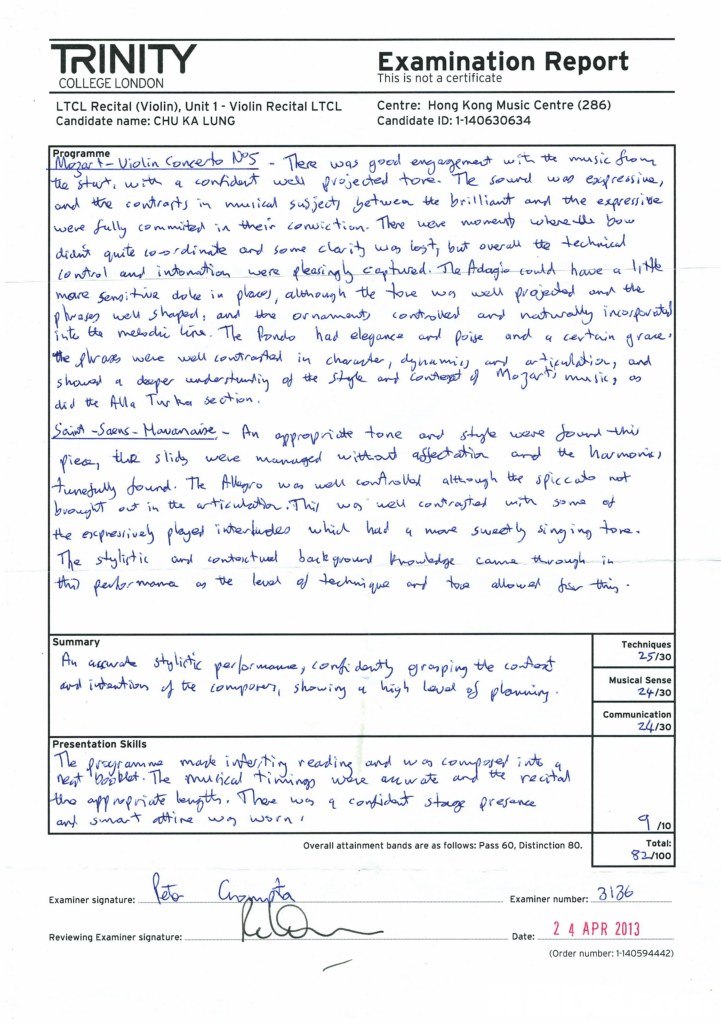 TRINITY
COLLEGE LONDON
Examination Report
This is not a certificate
LTCL Recital (Violin), Unit 1 - Violin Recital LTCL
Centre: Hong Kong Music Centre (286)
Candidate name: CHU KA LUNG
Candidate ID: 1-140630634
Programme
Mozart - Violin Concerto No5 - There was good engagement with the music from
the start, with a confident well projected tone. The sound was expressive,
and the contrasts in musical subjects between the brilliant and the expressive
were fully commited in their conviction. There were moments where the bow
didn't quite co-ordinate and some clarity was lost, but overall the technical
control and intonation were pleasingly captured. The Adagio could have a little
more sensitive dolce in places, although the tone was well projected and the
phrases well shaped, and the ornaments controlled and naturally incorporated
into the melodic line. The Rondo had elegance and poise and a certain grace,
the phrases were well contrasted in character, dynamics and articulation, and
showed a deeper understanding of the style and context of Mozart's music, as
did the Alla Turka section.
Saint-Saens - Havanaise - An appropriate tone and style were found this
piece, the slides were managed without affectation and the harmonics
tunefully found. The Allegro was well controlled although the spiccato not
brought out in the articulation. This was well contrasted with some of
the expressively played interludes which had a more sweetly singing tone.
The stylistic and contextual background knowledge came through in
this performance as the level of technique and tone allowed for this.
Summary
An accurate stylistic performance, confidently grasping the context
and intention of the composers, showing a high level of planning.
Techniques
25/30
Musical Sense
24/30
Communication
24/30
Presentation Skills
The programme made interesting reading and was composed into a
neat booklet. The musical timings were accurate and the recital
the appropriate length. There was a confident stage presence
and smart attire was worn.
9/10
Overall attainment bands are as follows: Pass 60, Distinction 80.
Total:
82/100
Examiner signature: Peter
Examiner number: 3136
Reviewing Examiner signature:
Date: 24 APR 2013
(Order number: 1-140594442)